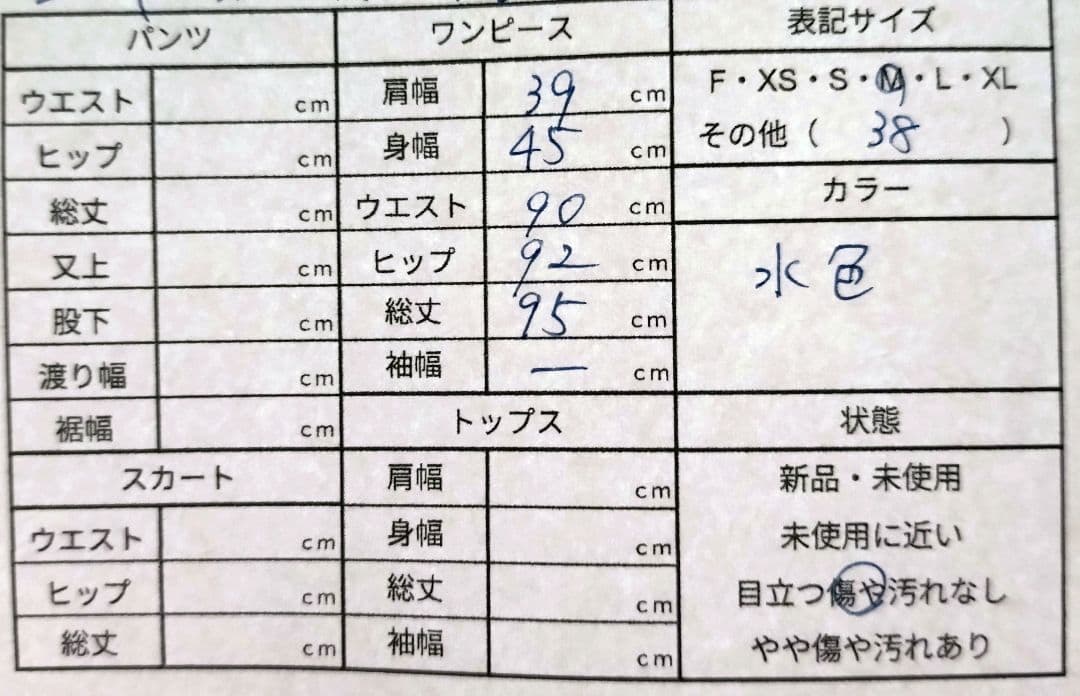 パンツ
ウエスト cm
ヒップ cm
総丈 cm
又上 cm
股下 cm
渡り幅 cm
裾幅 cm
スカート
ウエスト cm
ヒップ cm
総丈 cm
ワンピース
肩幅 39 cm
身幅 45 cm
ウエスト 90 cm
ヒップ 92 cm
総丈 95 cm
袖幅 — cm
トップス
肩幅 cm
身幅 cm
総丈 cm
袖幅 cm
表記サイズ
F・XS・S・M・L・XL
その他（ 38 ）
カラー
水色
状態
新品・未使用
未使用に近い
目立つ傷や汚れなし
やや傷や汚れあり